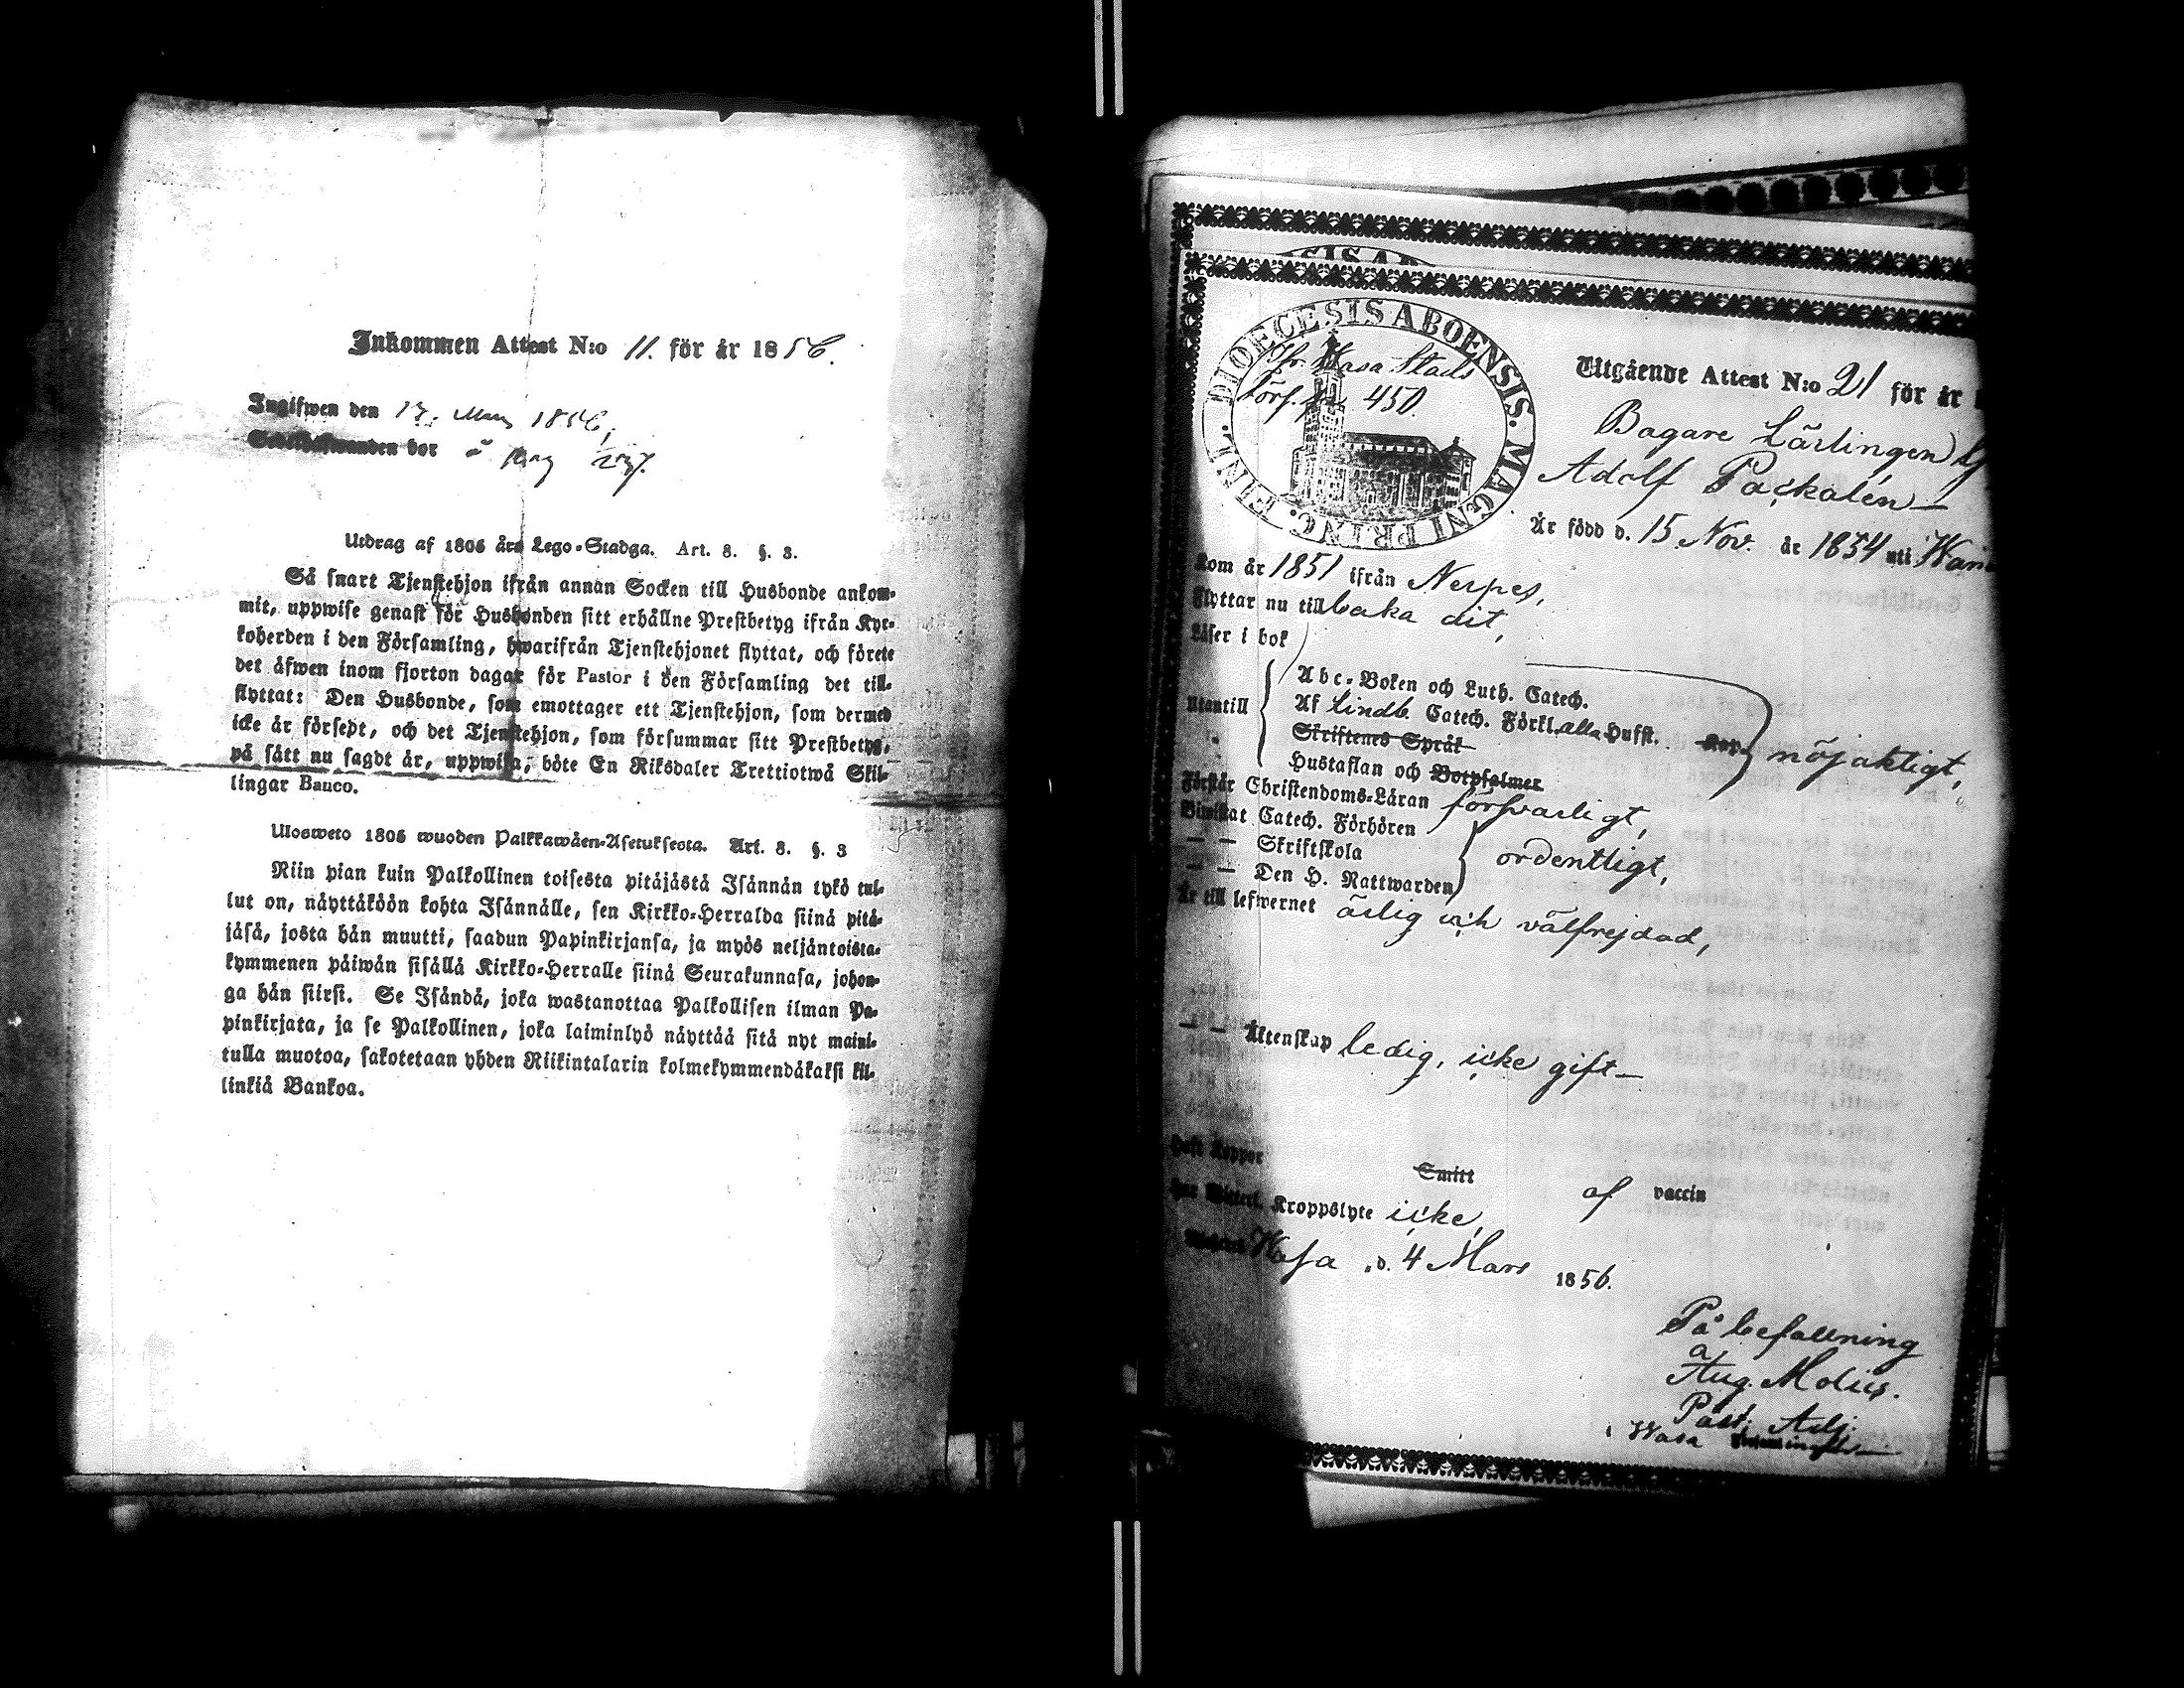 Inkommen Attest N:o 11. för år 1856.
Ingifwen den 17. Mars 1856,
Utdrag af 1805 års Lego-Stadga. Art. 8. §. 3.
Så snart Tjenstehjon ifrån annan Socken till Husbonde ankom-
mit, uppwise genast för Husbonden sitt erhållne Prestbetyg ifrån Kyr-
koherden i den Församling, hwarifrån Tjenstehjonet flyttat, och förete
det åfwen inom fjorton dagar för Pastor i den Församling det till-
flyttat: Den Husbonde, som emottager ett Tjenstehjon, som dermed
icke år försedt, och det Tjenstehjon, som försummar sitt Prestbetyg,
på sått nu sagdt år, uppwisa, böte En Riksdaler Trettiotwå Skil-
lingar Banco.
Ulosweto 1805 wuoden Palkkawåen-Asetuksesta. Art. 8. §. 3
Niin pian kuin Palkollinen toisesta pitåjåstå Isånnån tykö tul-
lut on, nåyttåköön kohta Isånnålle, sen Kirkko-Herralda siinå pitå-
jåså, josta hån muutti, saadun Papinkirjansa, ja myös neljåntoista-
kymmenen påiwån sisållå Kirkko-Herralle siinå Seurakunnasa, johon-
ga hån siirsi. Se Isåndå, joka wastanottaa Palkollisen ilman Pa-
pinkirjata, ja se Palkollinen, joka laiminlyö nåyttåå sitå nyt maini-
tulla muotoa, sakotetaan yhden Riikintalarin kolmekymmendåkaksi kil-
linkiå Bankoa.
DIOECESIS ABOENSIS. MAGNI PRINC. FINL.
Fr. Wasa Stads
Förs. 450.
Utgående Attest N:o 21 för år
Bagare Lärlingen
Adolf Packalén
År född d. 15 Nov. år 1834 uti
Kom år 1851 ifrån Nerpes,
Flyttar nu tillbaka dit,
Låser i bok
Utantill
Abc-Boken och Luth. Catech.
Af Lindb. Catech. Förkl. alla Hufst. Kap.
Skriftenes Språk
Hustaflan och Botpsalmer
nöjaktigt,
Förstår Christendoms-Låran försvarligt,
Biwistat Catech. Förhören
— — Skriftskola
— — Den H. Nattwarden
ordentligt,
År till lefwernet ärlig och välfrejdad,
— — Åktenskap ledig, icke gift—
Haft Koppor Smitt af vaccin
Kroppslyte icke,
Wasa d. 4 Mars 1856.
På befallning
Aug. Molius.
Past. Adj.
i Wasa